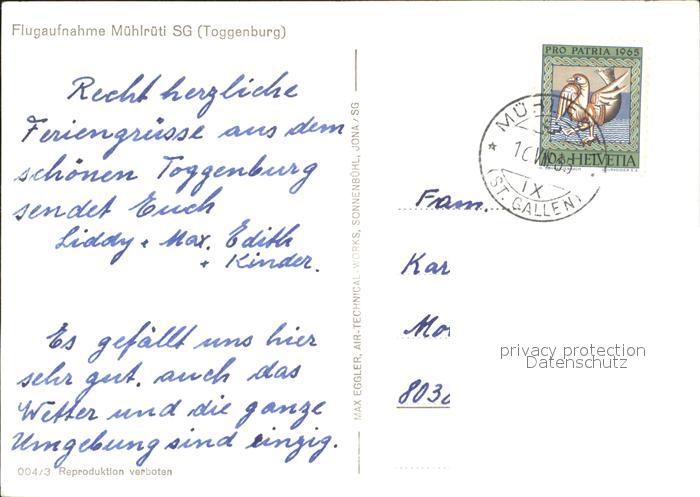 Flugaufnahme Mühlrüti SG (Toggenburg)
Recht herzliche
Feriengrüsse aus dem
schönen Toggenburg
sendet Euch
Liddy + Max. Edith
+ Kinder.
Es gefällt uns hier
sehr gut. auch das
Wetter und die ganze
Umgebung sind einzig.
004/3 Reproduktion verboten
MAX EGGLER, AIR-TECHNICAL-WORKS, SONNENBÜHL, JONA/SG
PRO PATRIA 1965
10 HELVETIA
IX
(ST. GALLEN)
Fam.
Kar
privacy protection
Datenschutz